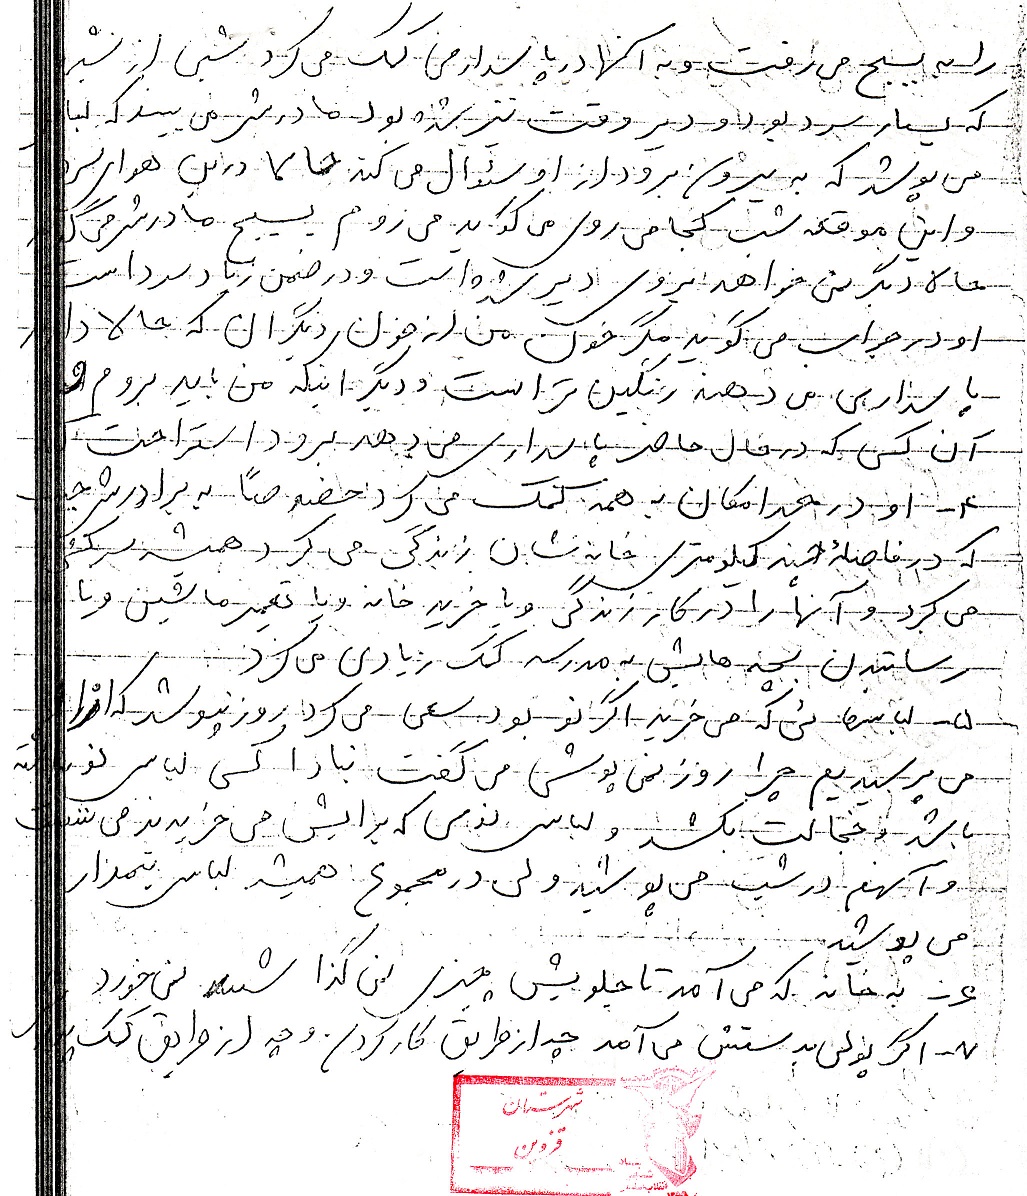 را به بسیج می رفت و به آنها در پاسداری کمک می کرد شبی از شبـ
که بسیار سرد بود و دیر وقت نیز شده بود مادرش می بیند که لبا
می پوشد که به بیرون برود از او سئوال می کند حالا در این هوای سرد
و این موقعه شب کجا می روی می گوید می روم بسیج مادرش می گـ
حالا دیگر نمی خواهد بروی دیر شده است و در ضمن زیاد سرد است
او در جواب می گوید مگر خون من از خون دیگران که حالا دا
پاسداری می دهند رنگین تر است و دیگر اینکه من باید بروم و
آن کسی که در حال حاضر پاسداری می دهد برود استراحت
۴- او در حد امکان به همه کمک می کرد خصوصاً به برادرش
که در فاصلهٔ چند کیلومتری خانه شان زندگی می کرد همیشه سرکشی
می کرد و آنها را در کار زندگی و یا خرید خانه و یا تعمیر ماشین و یا
رسانیدن بچه هایش به مدرسه کمک زیادی می کرد
۵- لباسهائی که می خرید اگر نو بود سعی می کرد روز نپوشد که از او
می پرسیدیم چرا روز نمی پوشی می گفت مبادا کسی لباس نو نداشته
باشد و خجالت بکشد و لباس نوی که برایش می خریدند می شست
و آنهم در شب می پوشید ولی در مجموع همیشه لباس نیمدار
می پوشید
۶- به خانه که می آمد تا جلویش چیزی نمی گذاشتند نمی خورد
۷- اگر پولی بدستش می آمد چه از طریق کار کردن و چه از طریق کمک
شهرستان
قزوین